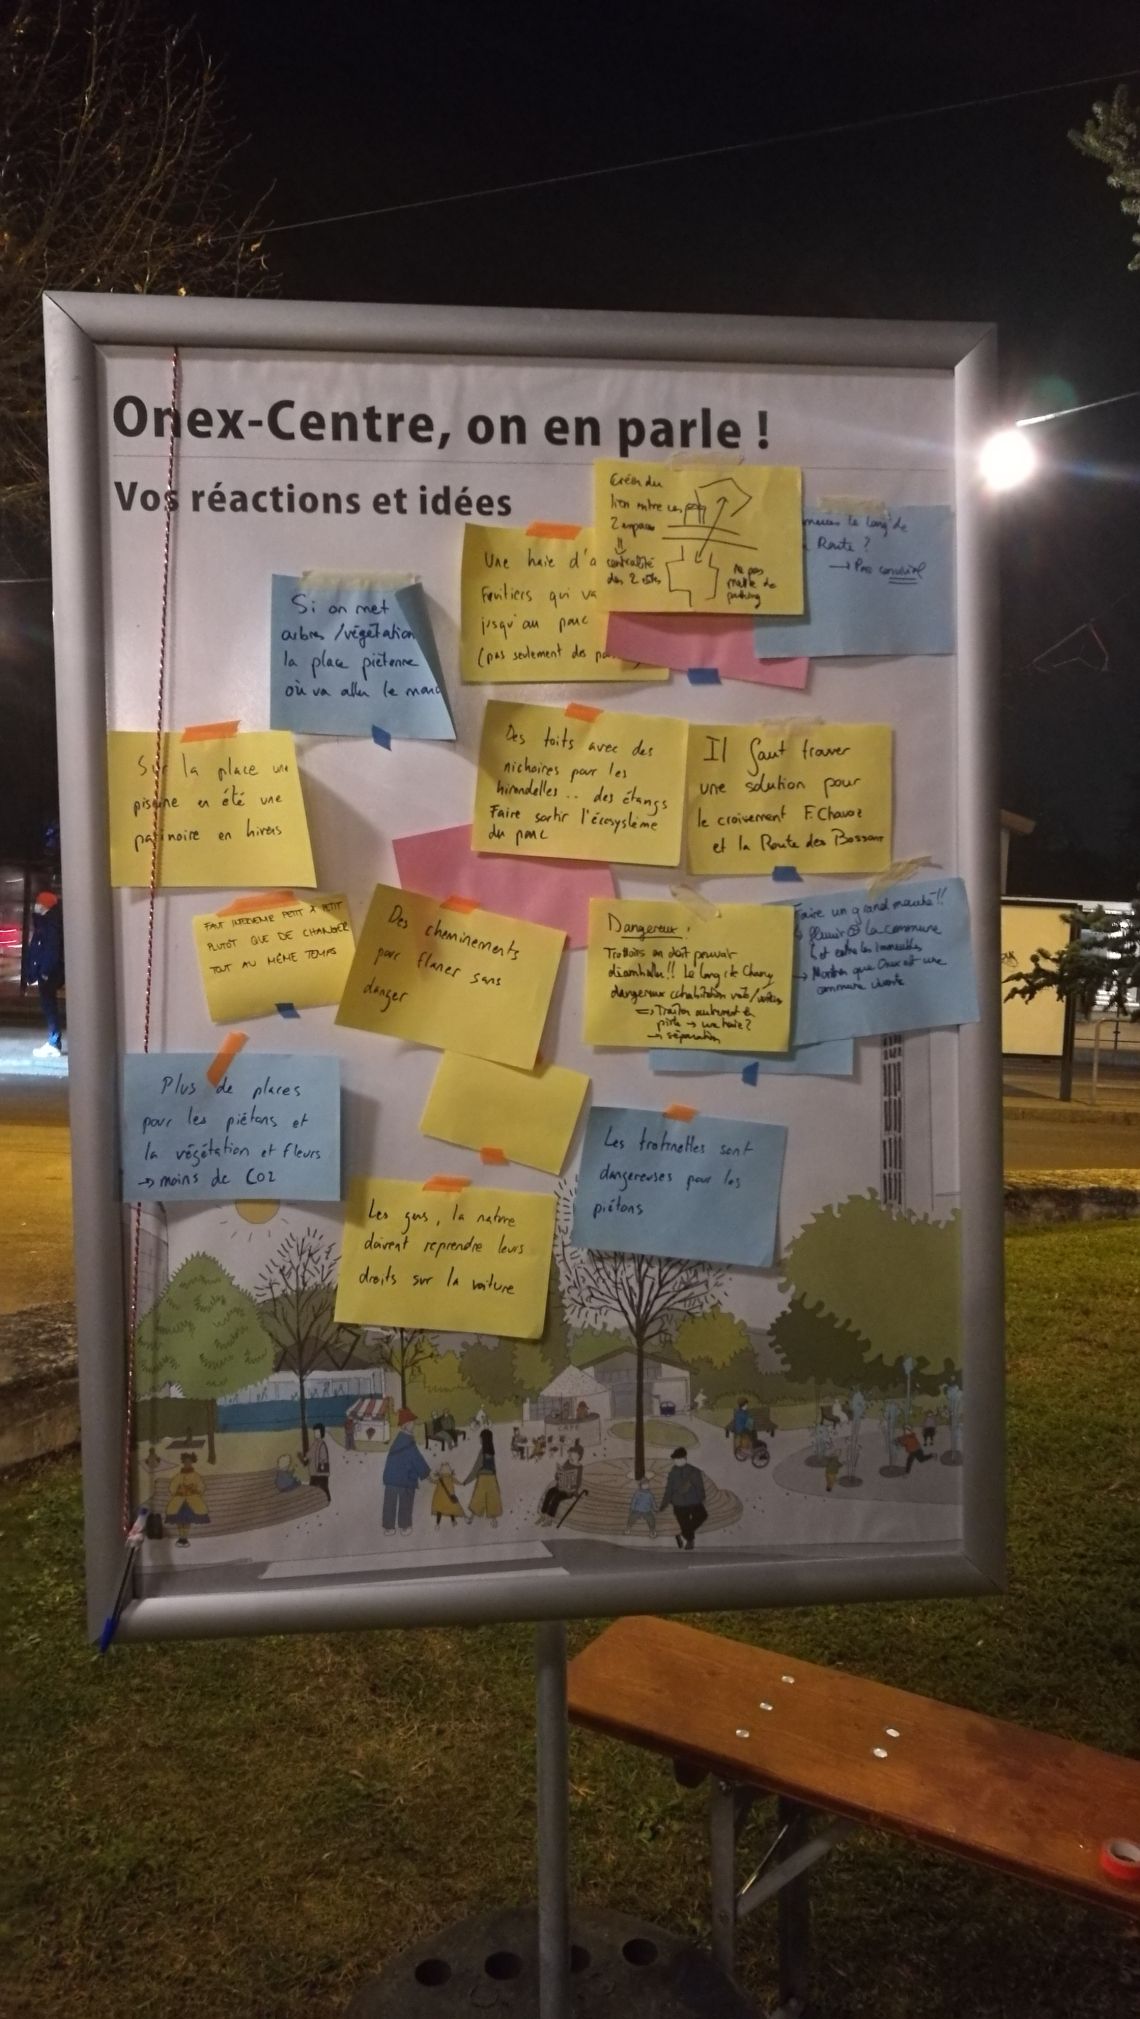 Onex-Centre, on en parle !
Vos réactions et idées
Créer du
lien entre ces
2 espaces
centralité
des 2 côtés
Ne pas
mettre de
parking
le long de
Route ?
→ Pas convivial
Une haie d'a
fruitiers qui va
jusqu'au parc
(pas seulement des
Si on met
arbres / végétation
la place piétonne
où va aller le marc
Sur la place une
piscine en été une
patinoire en hivers
Des toits avec des
nichoires pour les
hirondelles .. des étangs
Faire sortir l'écosystème
du parc
Il faut trouver
une solution pour
le croisement F. Chavaz
et la Route des Bossons
FAUT INTERVENIR PETIT À PETIT
PLUTÔT QUE DE CHANGER
TOUT AU MÊME TEMPS
Des cheminements
pour flaner sans
danger
Dangereux :
Trottoirs on doit pouvoir
déambuler !! Le long rte Chancy
dangereux cohabitation
=> Traiter autrement
piste → une haie ?
→ séparation
Faire un grand marché !!
la commune
et entre les immeubles
→ Montrer que Onex est une
commune vivante
Plus de places
pour les piétons et
la végétation et fleurs
→ moins de CO2
Les trotinettes sont
dangereuses pour les
piétons
Les gens, la nature
doivent reprendre leurs
droits sur la voiture